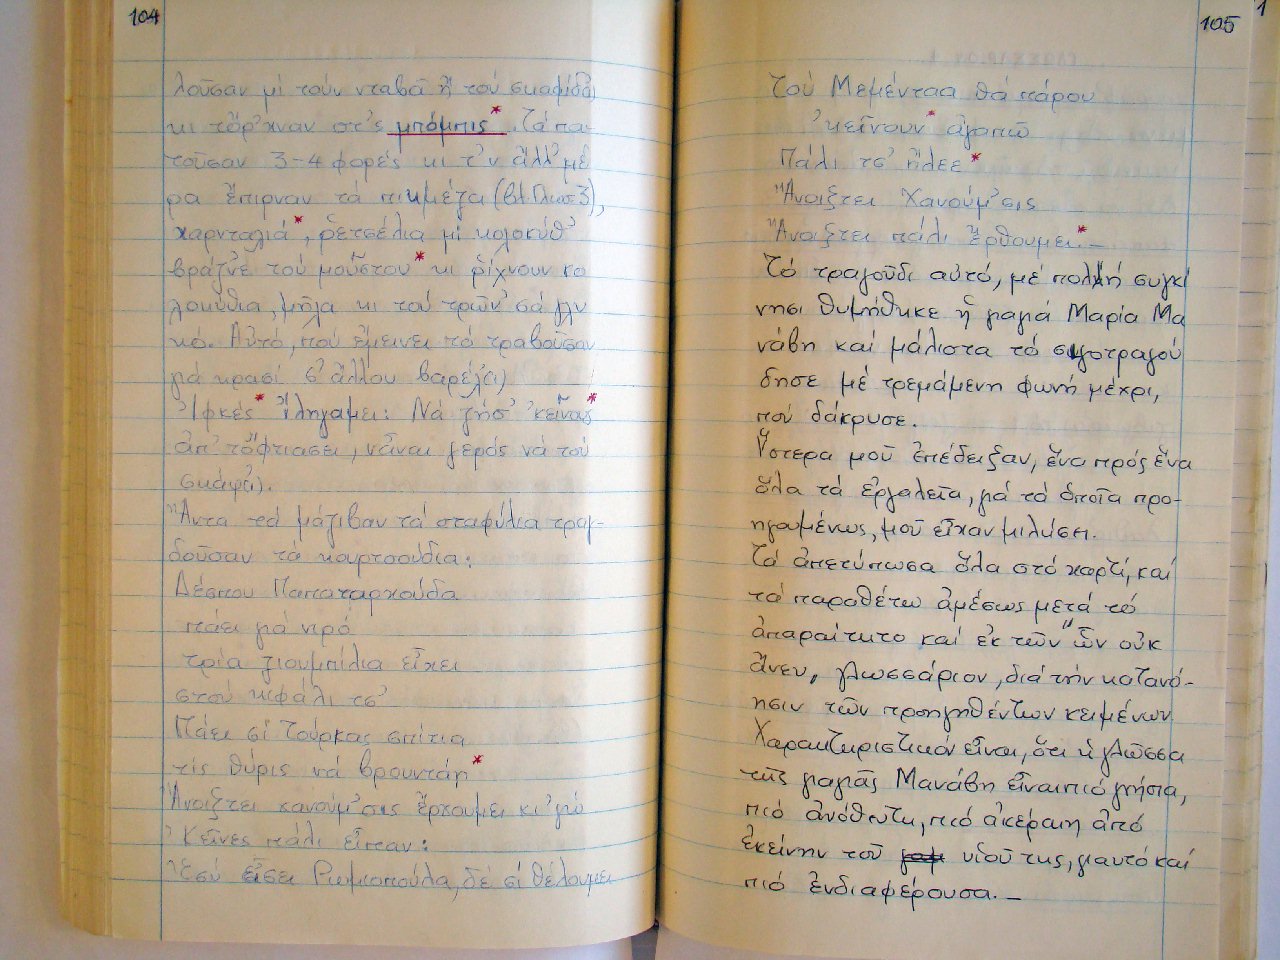 104
λοῦσαν μὶ τοὺν νταβᾶ ἢ τοὺ σκαφίδι)
κι τὄρ'χναν στ'ς μπόμπις*. Τὰ πα-
τοῦσαν 3-4 φορές κι τ'ν ἄλλ' μέ
ρα ἔπιρναν τὰ πικμέζα (βλ. Γλωσ. 3),
χαρνταλιά*, ῥετσέλια μὶ κολοκύθ'
βράζ'νε τοὺ μοῦστου* κι ρίχνουν κο
λοκύθια, μῆλα κι τοὺ τρῶν' σὰ γλυ
κό. Αὐτό, ποὺ ἔμεινει τὸ τραβοῦσαν
γιὰ κρασί σ' ἄλλου βαρέλ(ι)
Ἰφκές* ἴληγαμει: Νὰ ζήσ' 'κεῖνους*
ἀπ' τὄφτιασει, νἆναι γερός νὰ τοὺ
σκάψ(ι).
Ἄντα τὰ μάζιβαν τὰ σταφύλια τραγ-
δοῦσαν τὰ κουρτσούδια:
Δέσπου Παπαταρχούδα
πάει γιὰ νιρό
τρία γιουμπίλια εἶχει
στοὺ κιφάλι τσ'
Πάει σὶ Τούρκας σπίτια
τὶς θύρις νὰ βρουντάῃ*
Ἄνοιξτει χανούμ'σις ἔρχουμει κι' γώ
'Κεῖνες πάλι εἶπαν:
Ἐσύ εἶσει Ρωμιοπούλα, δὲ σὶ θέλουμει
105
Τοὺ Μεμένταα θὰ πάρου
'κεῖνουν* ἀγαπῶ
Πάλι τσ' ἤλεε*
Ἄνοιξτει Χανούμ'σις
Ἄνοιξτει πάλι ἔρθουμει*._
Τὸ τραγοῦδι αὐτό, μὲ πολλή συγκί
νησι θυμήθηκε ἡ γιαγιά Μαρία Μα
νάβη καί μάλιστα τὸ σιγοτραγού
δησε μὲ τρεμάμενη φωνή μέχρι,
ποὺ δάκρυσε.
Ὕστερα μοῦ ἐπέδειξαν, ἕνα πρός ἕνα
ὅλα τὰ ἐργαλεῖα, γιὰ τὰ ὁποῖα προ-
ηγουμένως, μοῦ εἶχαν μιλήσει.
Τὰ ἀπετύπωσα ὅλα στὸ χαρτί, καί
τὰ παραθέτω ἀμέσως μετὰ τό
ἀπαραίτητο καί ἐκ τῶν ὧν οὐκ
ἄνευ, γλωσσάριον, διὰ τὴν κατανό-
ησιν τῶν προηγηθέντων κειμένων
Χαρακτηριστικόν εἶναι, ὅτι ἡ γλῶσσα
τῆς γιαγιᾶς Μανάβη εἶναι πιό γνήσια,
πιό ἀνόθευτη, πιό ἀκέραιη ἀπό
ἐκείνην τοῦ υἱοῦ της, γιαυτό καί
πιό ἐνδιαφέρουσα._